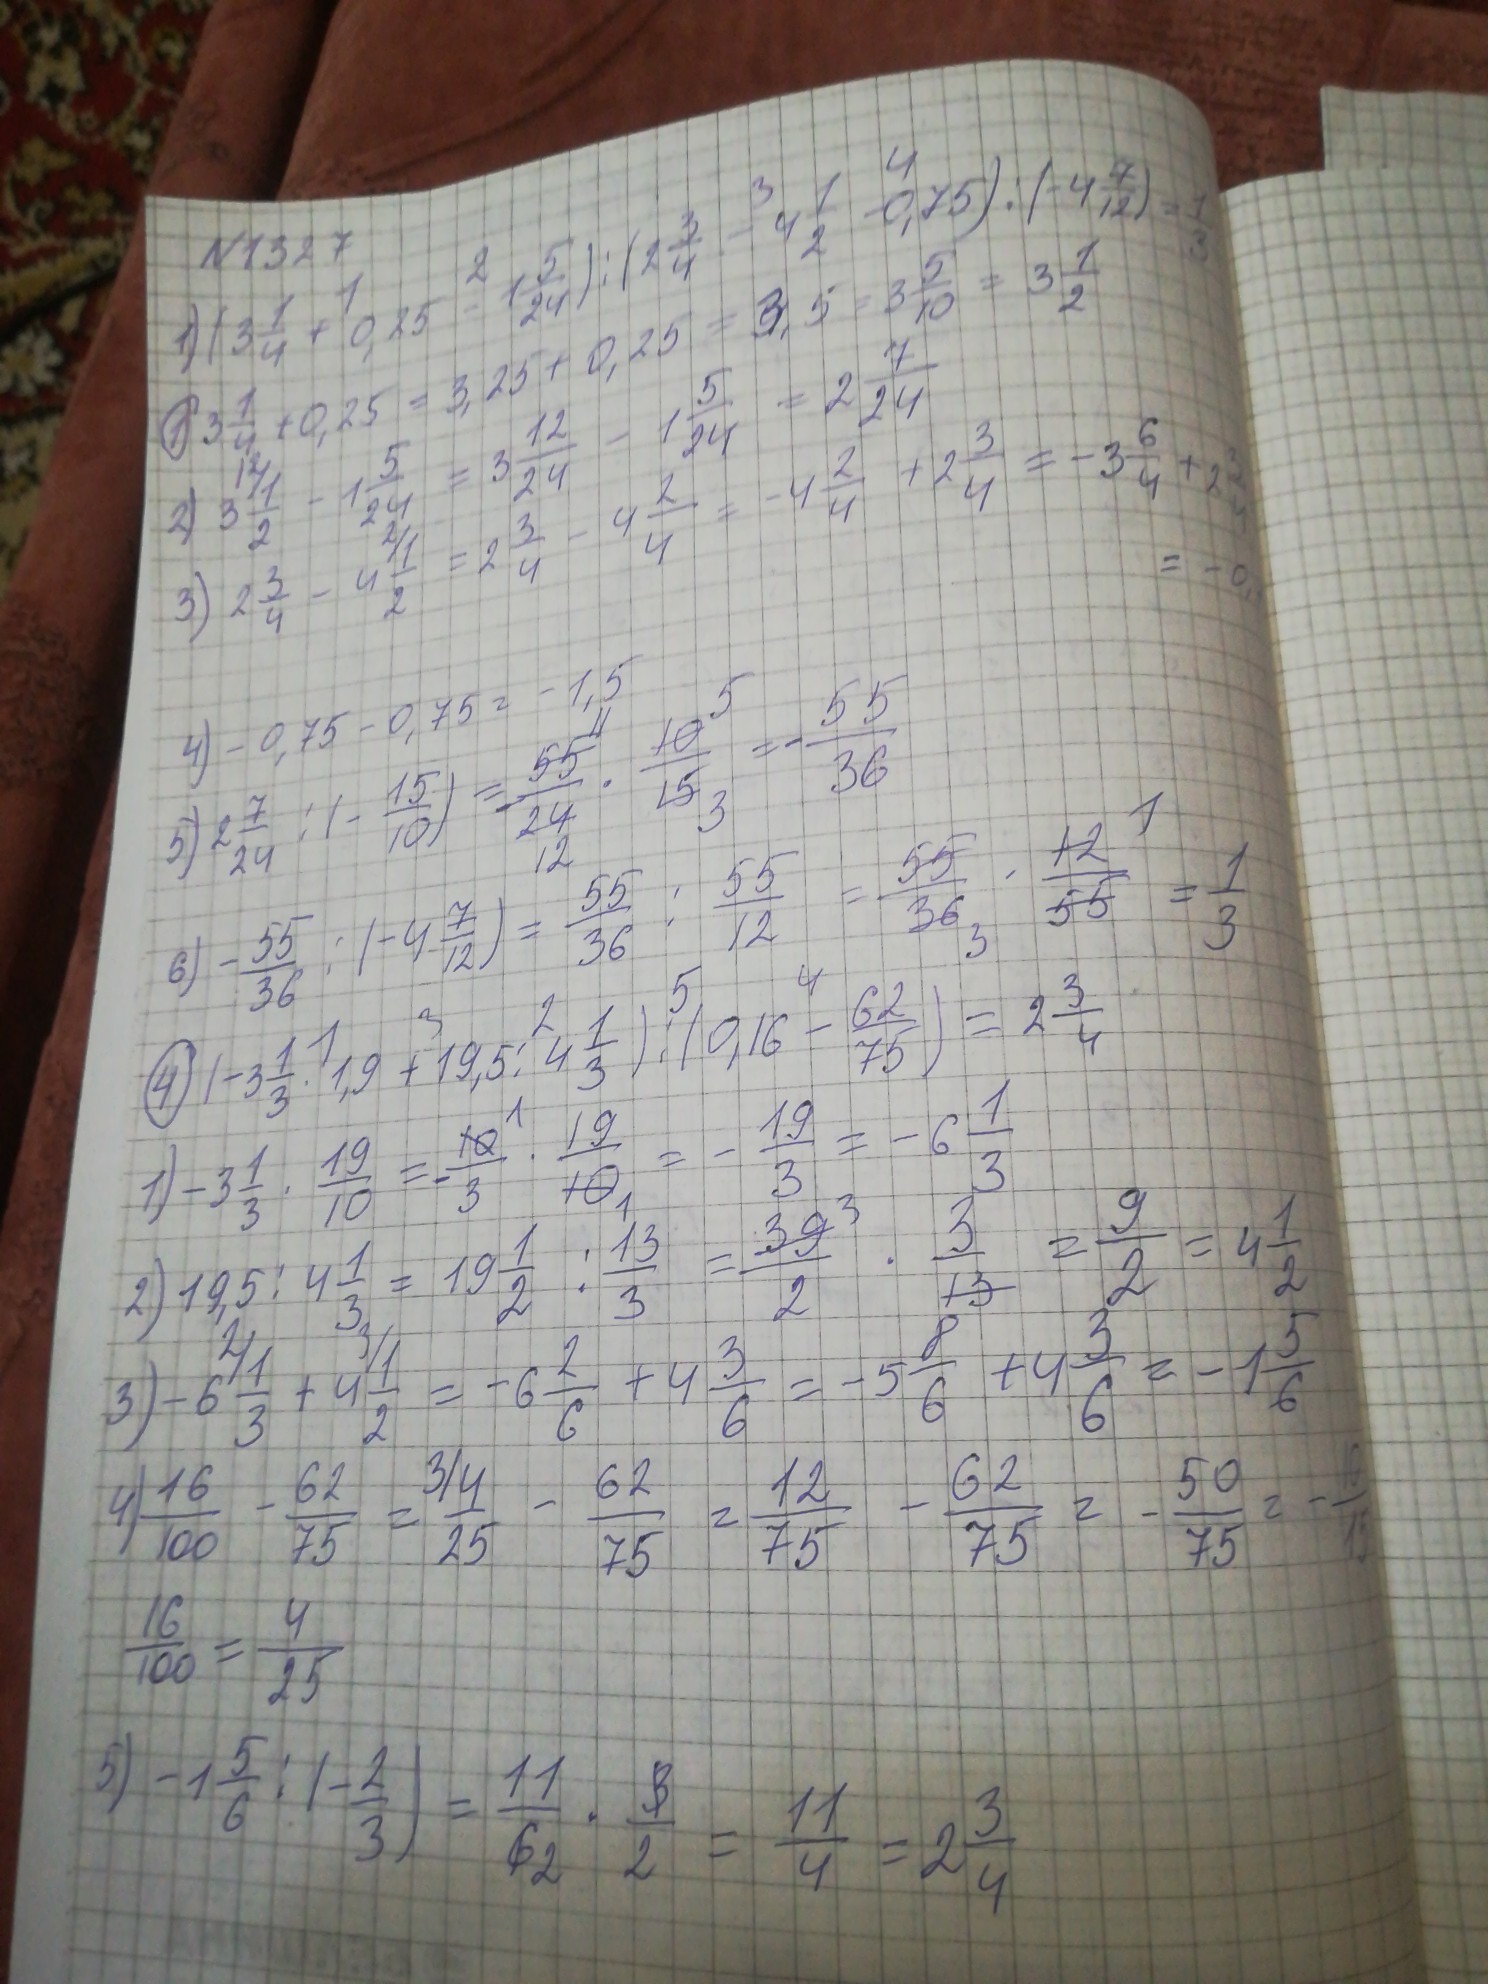 N1327
1) (3 1/4 + 0,25 - 1 5/24) : (2 3/4 - 4 1/2 - 0,75) : (-4 7/12) = 1/3
1) 3 1/4 + 0,25 = 3,25 + 0,25 = 3,5 = 3 5/10 = 3 1/2
2) 3 1/2 - 1 5/24 = 3 12/24 - 1 5/24 = 2 7/24
3) 2 3/4 - 4 1/2 = 2 3/4 - 4 2/4 = -4 2/4 + 2 3/4 = -3 6/4 + 2 3/4
= -0,
4) -0,75 - 0,75 = -1,5
5) 2 7/24 : (- 15/10) = - 55/24 · 10/15 = - 55/36
6) - 55/36 : (-4 7/12) = 55/36 : 55/12 = 55/36 · 12/55 = 1/3
4) (-3 1/3 · 1,9 + 19,5 : 4 1/3) : (0,16 - 62/75) = 2 3/4
1) -3 1/3 · 19/10 = - 10/3 · 19/10 = - 19/3 = -6 1/3
2) 19,5 : 4 1/3 = 19 1/2 : 13/3 = 39/2 · 3/13 = 9/2 = 4 1/2
3) -6 1/3 + 4 1/2 = -6 2/6 + 4 3/6 = -5 8/6 + 4 3/6 = -1 5/6
4) 16/100 - 62/75 = 4/25 - 62/75 = 12/75 - 62/75 = - 50/75 = - 10/15
16/100 = 4/25
5) -1 5/6 : (- 2/3) = 11/6 · 3/2 = 11/4 = 2 3/4